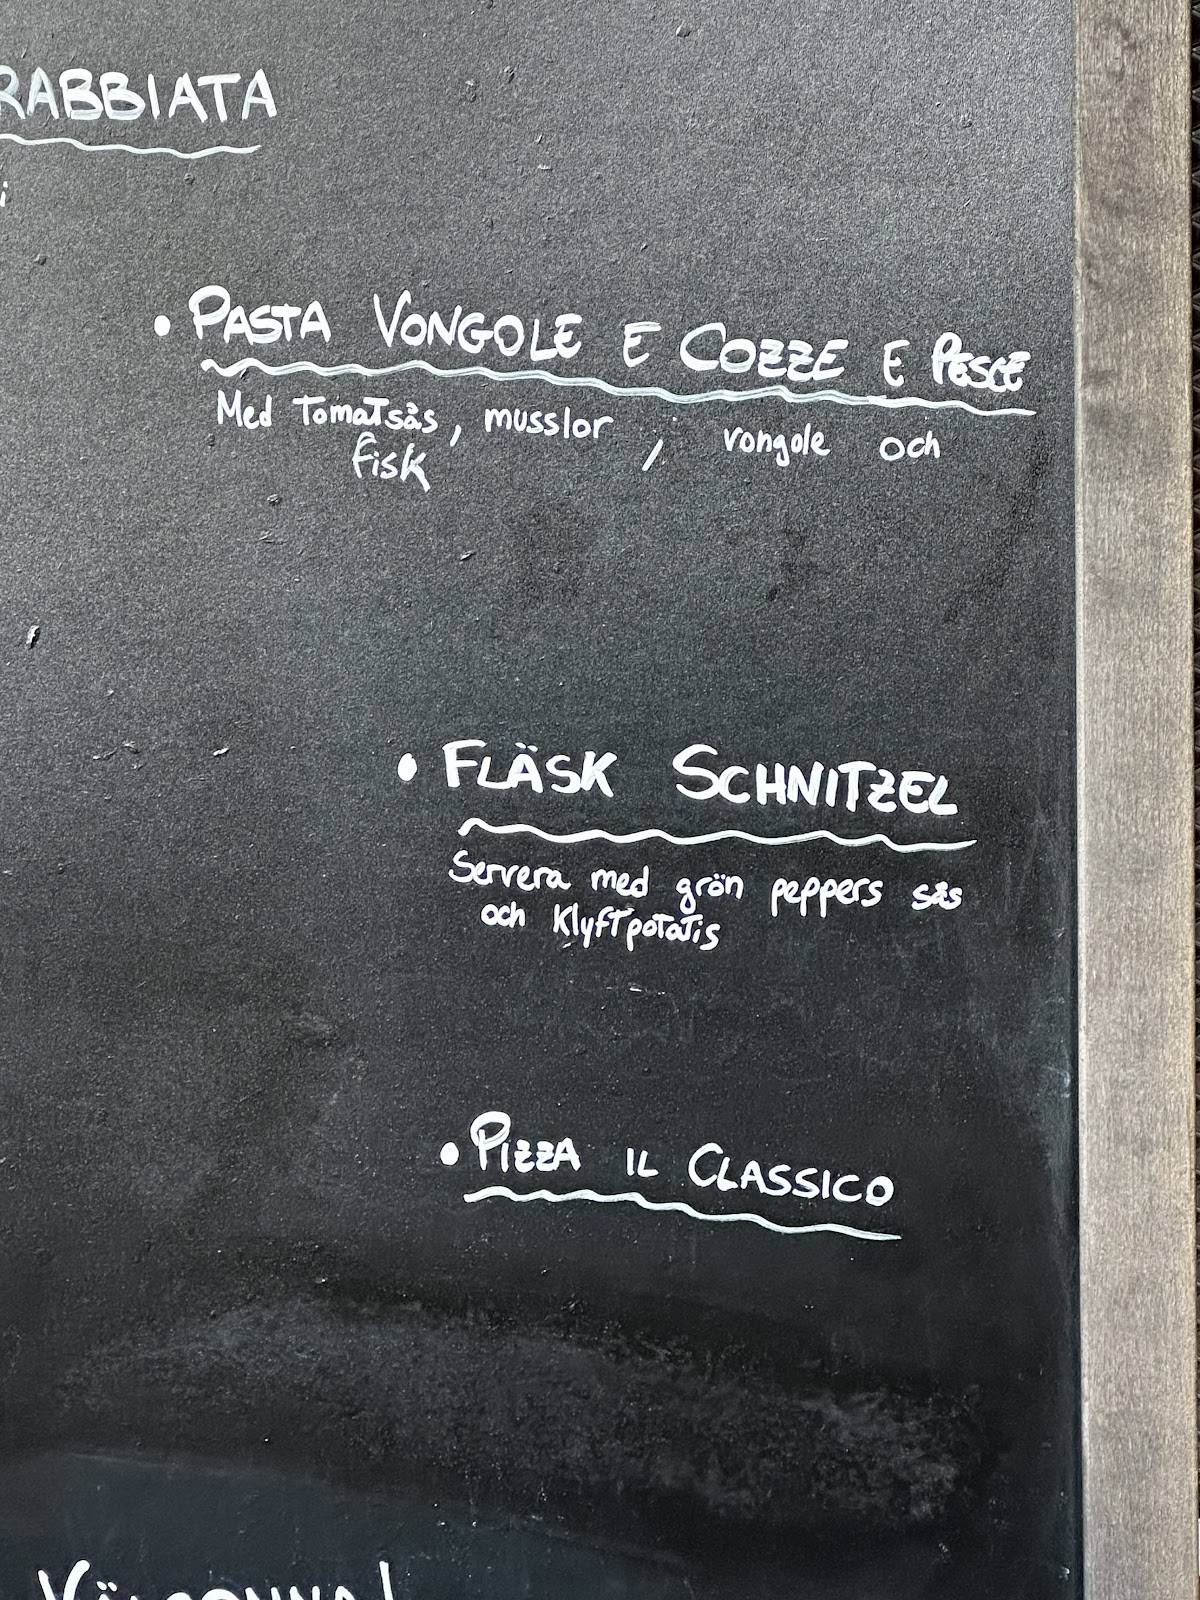 RABBIATA
i
• PASTA VONGOLE E COZZE E PESCE
Med Tomatsås, musslor, vongole och
fisk
• FLÄSK SCHNITZEL
Servera med grön peppers sås
och Klyftpotatis
• PIZZA IL CLASSICO